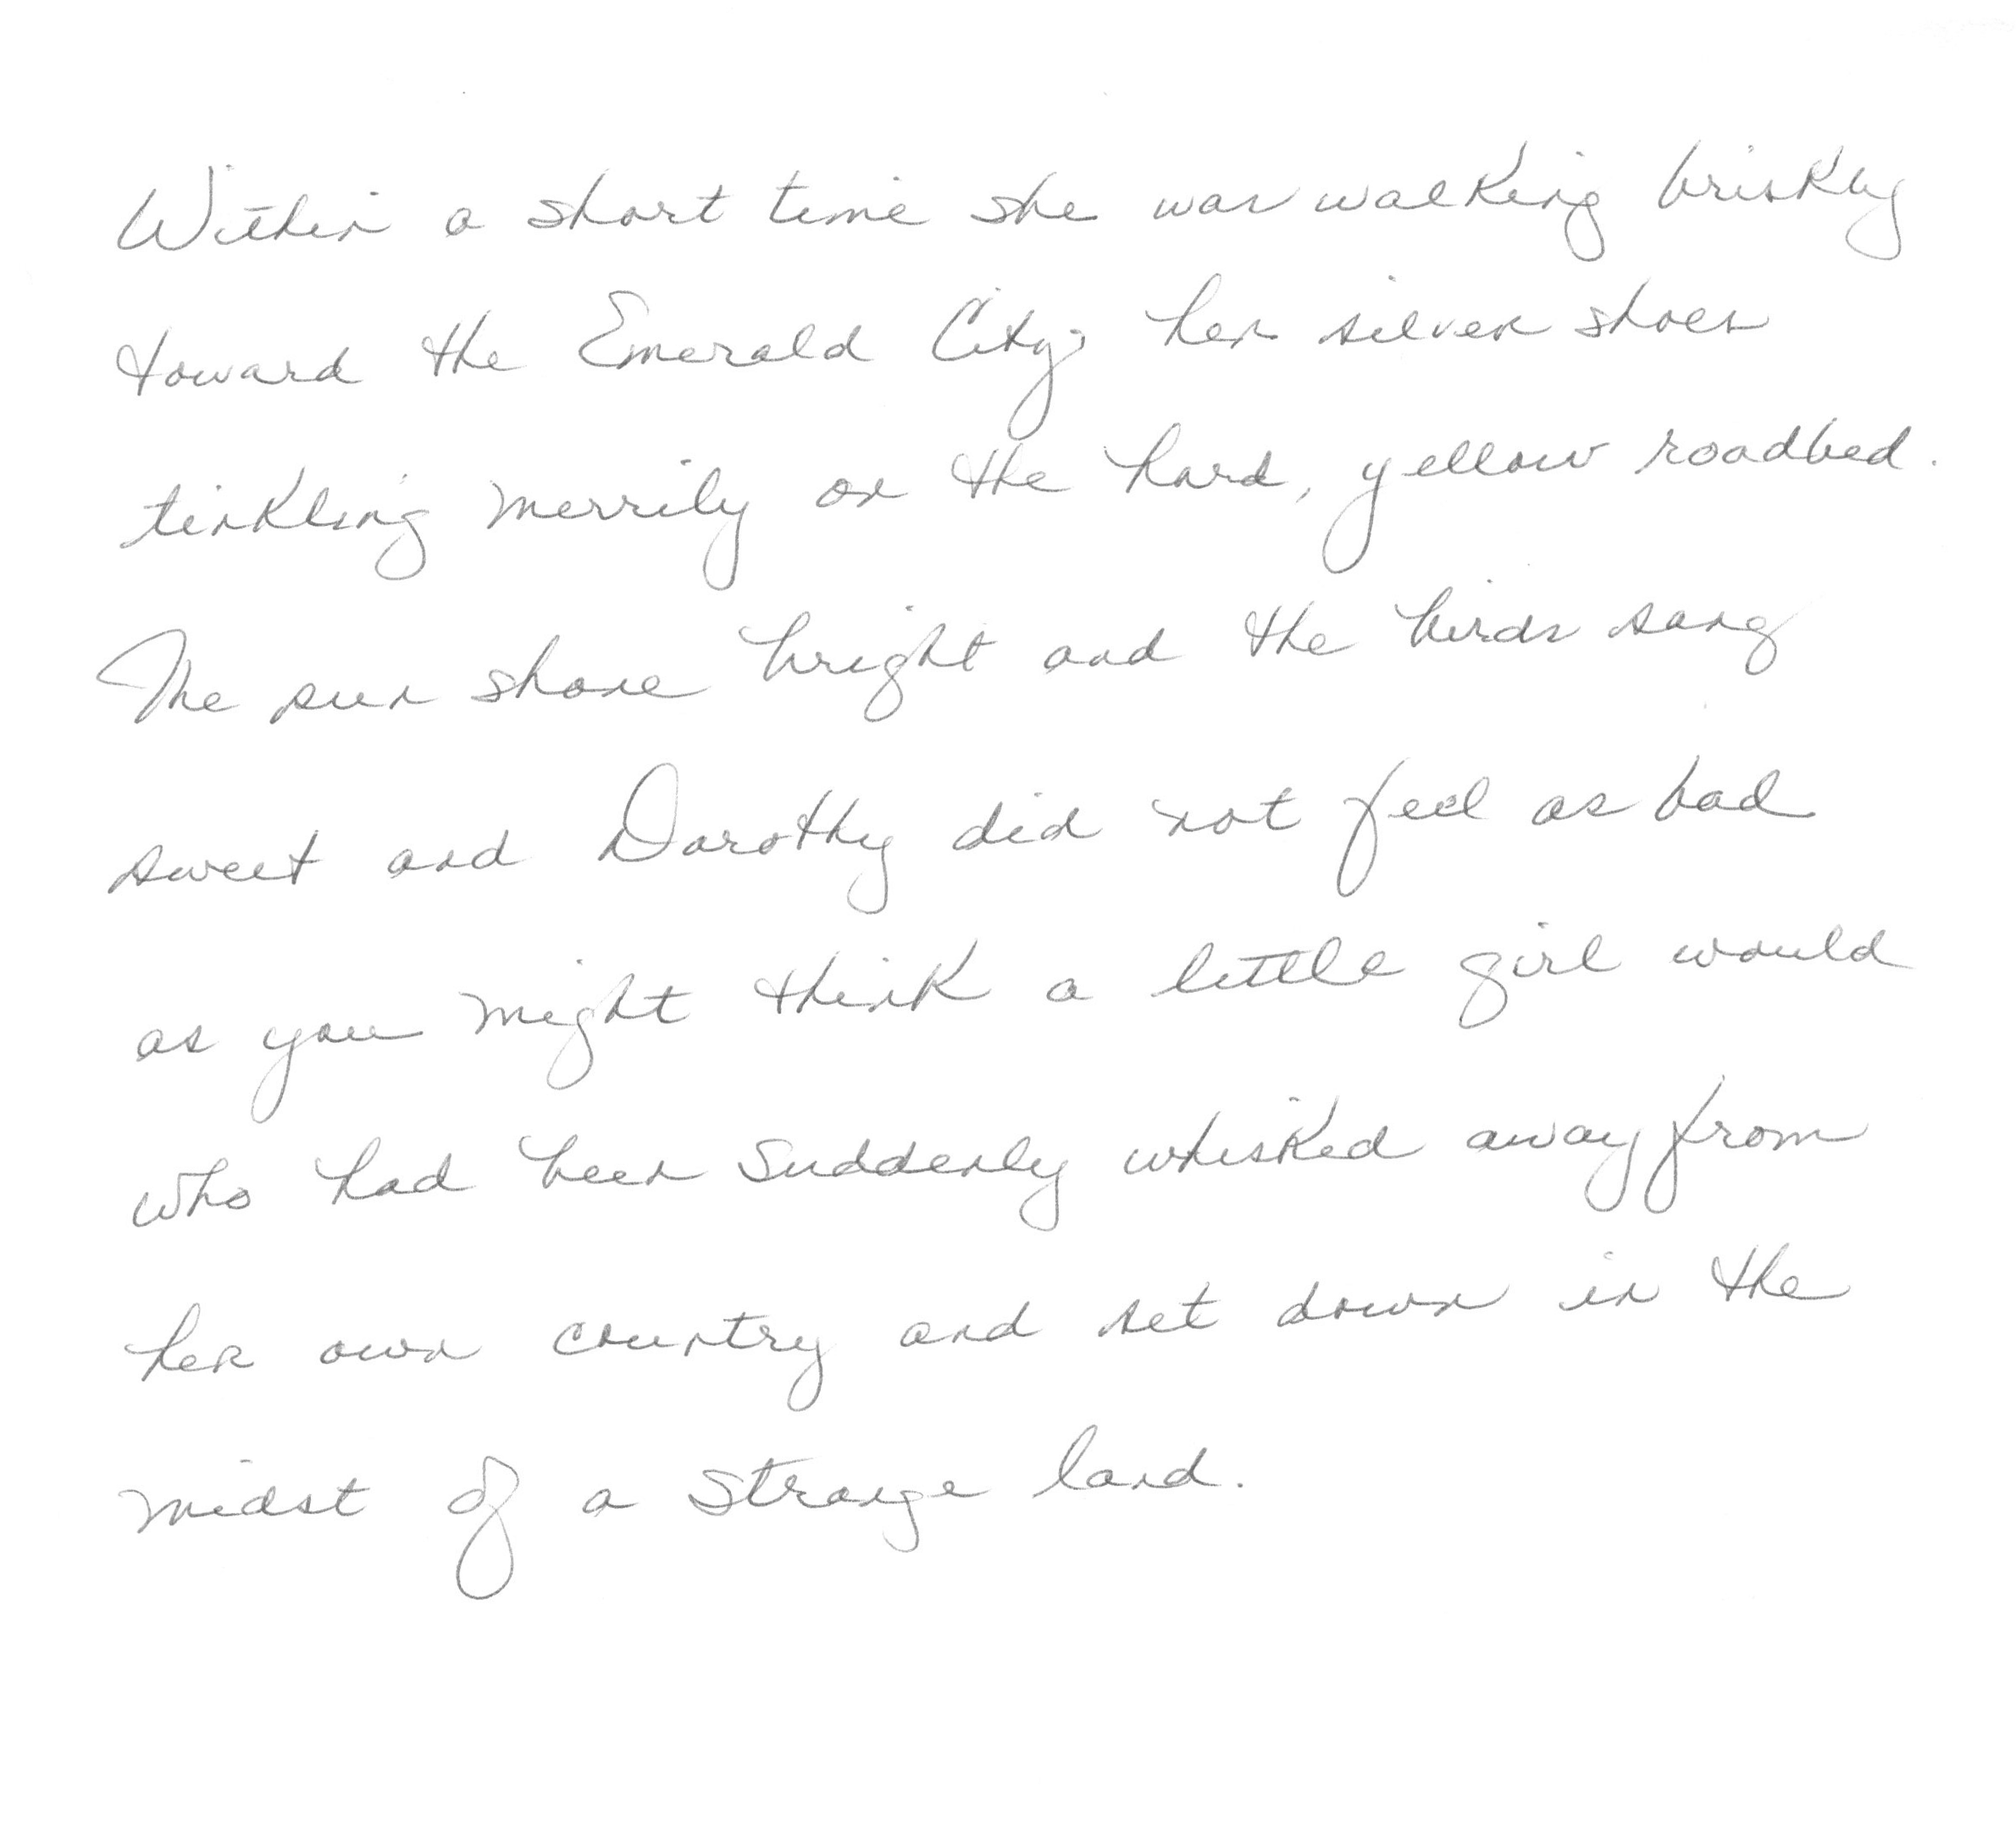 Within a short time she was walking briskly
toward the Emerald City; her silver shoes
tinkling merrily on the hard, yellow roadbed.
The sun shone bright and the birds sang
sweet and Dorothy did not feel as bad
as you might think a little girl would
who had been suddenly whisked away from
her own country and set down in the
midst of a strange land.